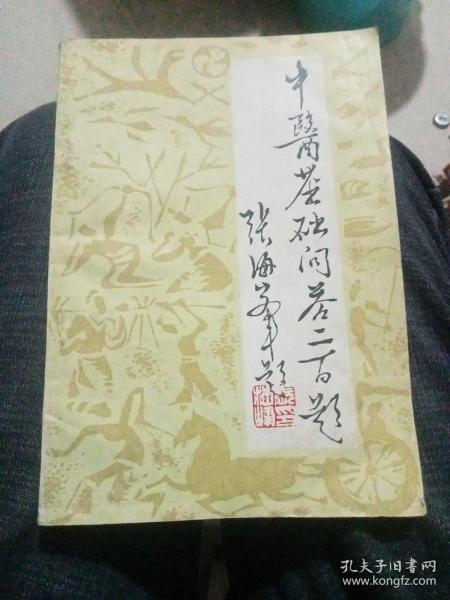 中醫基础问答二百题
张海峯题
孔夫子旧书网
www.kongfz.com